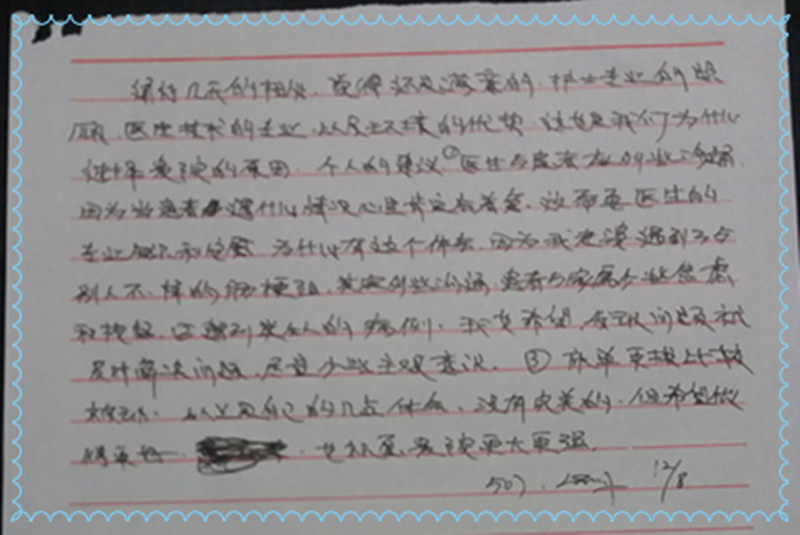 经过几天的相处，觉得还是满意的，护士专业的照
顾，医生技术的专业，以及环境的优势，这也是我们为什么
选择贵院的原因。个人的建议①医生与患者应多些沟通
因为当患者遇什么情况心里肯定很着急，这需要医生的
专业解释和安慰，为什么有这个体会，因为我老婆遇到了与
别人不一样的肠梗阻，其实多些沟通，患者与家属少些焦虑
和担忧，正遇到类似人的病例，我更希望，发现问题及时
及时解决问题，尽量少些主观意识。② 床单更换比较
以上是自己的几点体会，没有完美的，但希望做
得更好。 贵院更大更强。
507. 12/8